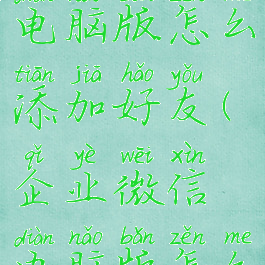 电脑版怎么
tiān jiā hǎo yǒu
添加好友(
qǐ yè wēi xìn
企业微信
diàn nǎo bǎn zěn me
电脑版怎么